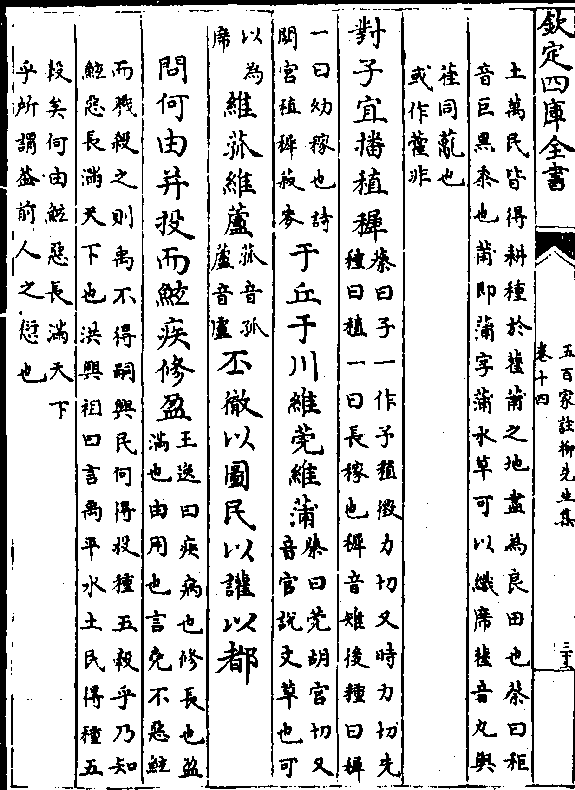 欽定四庫全書
五百家註柳先生集
卷十四
土萬民皆得耕種於萑莆之地盡為良田也蔡曰秬
音巨黑黍也莆即蒲字蒲水草可以織席萑音丸與
萑同薍也
或作雚非
對子宜播植稺
蔡曰子一作予稙徵力切又時力切先
種曰稙一曰長稼也稺音雉後種曰稺
一曰幼稼也詩
閟宮稙稺菽麥
于丘于川維莞維蒲
蔡曰莞胡官切又
音官說文草也可
以為
席
維菰維蘆
菰音孤
蘆音盧
丕徹以圖民以讙以都
問何由并投而鮌疾修盈
王逸曰疾病也修長也盈
滿也由用也言堯不惡鮌
而戮殺之則禹不得嗣興民何得投種五穀乎乃知
鮌惡長滿天下也洪興祖曰言禹平水土民得種五
穀矣何由鮌惡長滿天下
乎所謂蓋前人之愆也